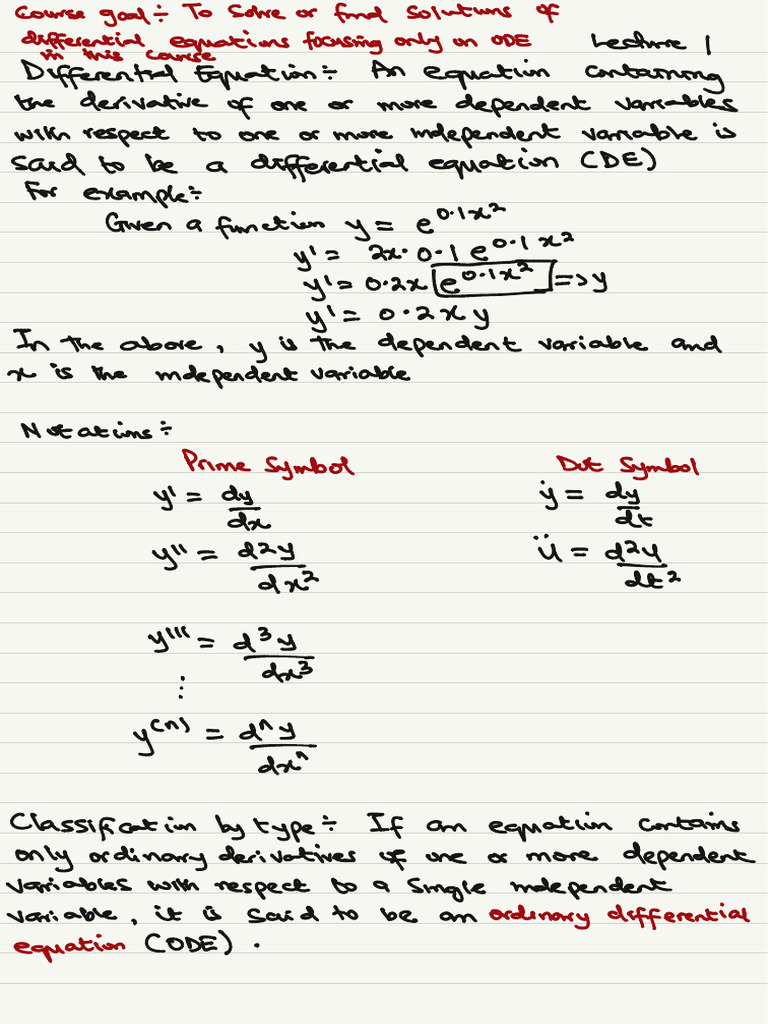 Course goal÷ To Solve or find solutions of
differential equations focusing only on ODE
in this course
Lecture 1
Differential Equation÷ An equation containing
the derivative of one or more dependent variables
with respect to one or more independent variable is
said to be a differential equation (DE)
For example÷
Given a function y = e^{0.1x^2}
y' = 2x·0.1 e^{0.1x^2}
y' = 0.2x e^{0.1x^2} => y
y' = 0.2xy
In the above, y is the dependent variable and
x is the independent variable
Notations÷
Prime Symbol Dot Symbol
y' = dy/dx ẏ = dy/dt
y'' = d2y/dx^2 ü = d^2u/dt^2
y''' = d^3y/dx^3
⋮
y^{(n)} = d^ny/dx^n
Classification by type÷ If an equation contains
only ordinary derivatives of one or more dependent
variables with respect to a single independent
variable, it is said to be an ordinary differential
equation (ODE).